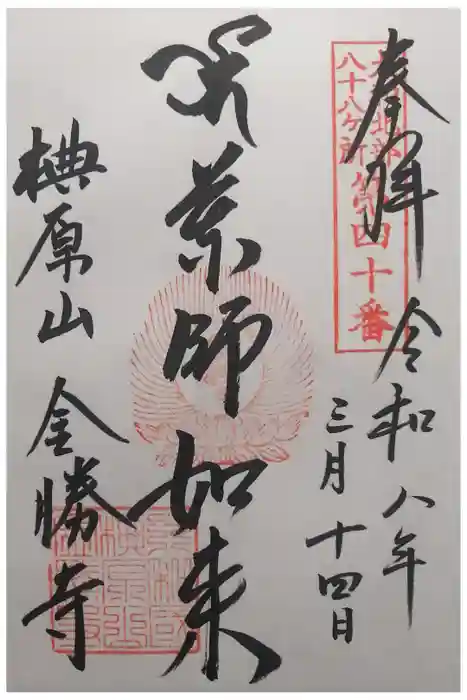 奉拝
令和八年
三月十四日
大和北部
八十八ヶ所
第四十番
薬師如来
椣原山
金勝寺